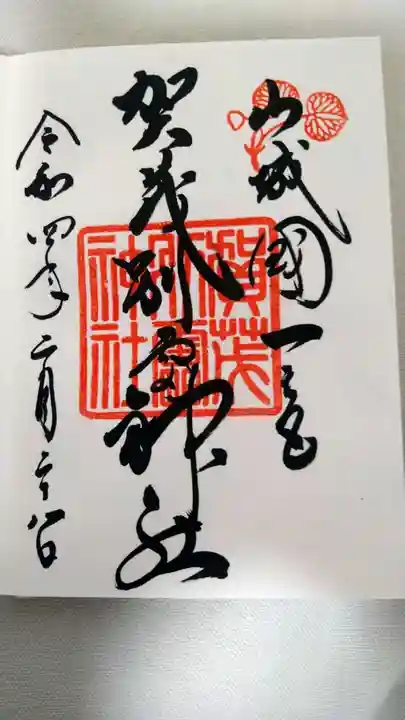 山城國一之宮
賀茂別雷神社
賀茂別雷神社
令和四年二月二十八日